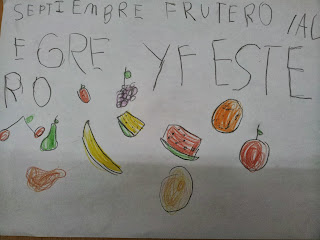 SEPTIEMBRE FRUTERO AL
EGRE Y FESTE
RO